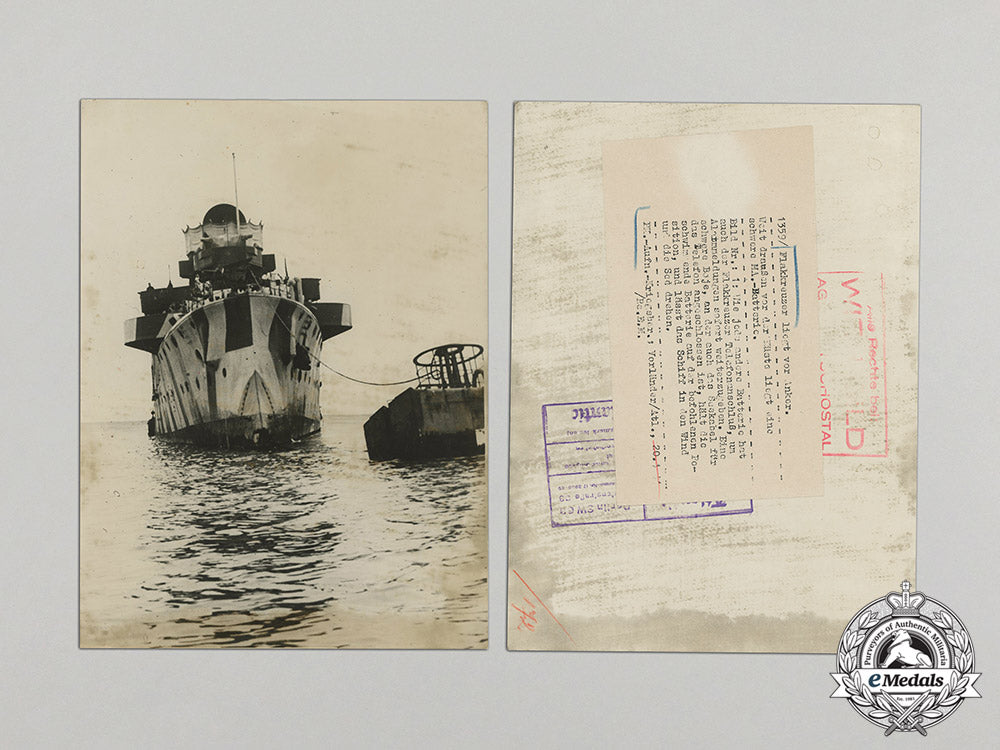 1359/ Flakkreuzer liegt vor Anker.
Weit draußen vor der Küste liegt eine
schwere MA.-Batterie.
Bild Nr.: 1: Wie jede andere Batterie hat
auch der Flakkreuzer Telefonanschluß, um
Alarmmeldungen sofort weiterzugeben. Eine
schwere Boje, an der auch das Seekabel für
das Telefon angeschlossen ist, hält die
schwimmende Batterie auf der befohlenen Po-
sition, und lässt das Schiff in den Wind
und die See drehen.
PK.-Aufn.: Kriegsber.: Vorländer/Atl.,
Atlantic
Berlin SW 68
Alle Rechte
LD
Purveyors of Authentic Militaria
eMedals